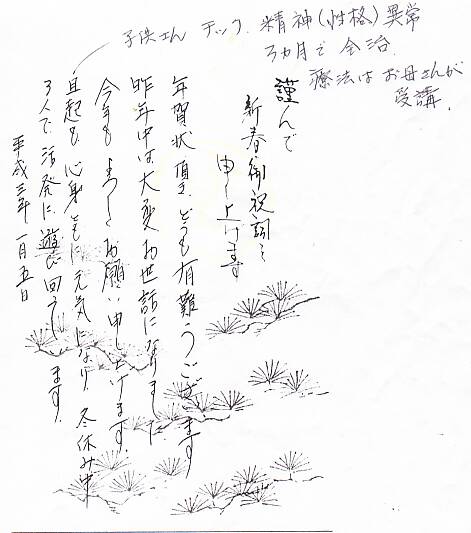 子供さん チック、精神(性格)異常
3ヵ月で全治.
療法はお母さんが
受講.
謹んで
新春御祝詞を
申し上げます
年賀状頂き、どうも有難うございます
昨年中は大変お世話になりました
今年もよろしくお願い申し上げます.
直起も心身ともに元気になり冬休み中
3人で活発に遊び回ってします.
平成三年一月五日